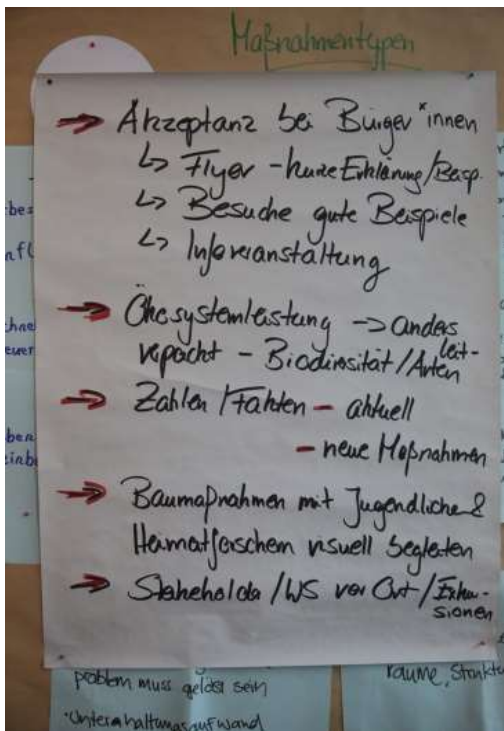 Maßnahmentypen
→ Akzeptanz bei Bürger*innen
↳ Flyer - kurze Erklärung/Beisp.
↳ Besuche gute Beispiele
↳ Infoveranstaltung
→ Ökosystemleistung → anders
verpackt - Biodiversität/Leit-
Arten
→ Zahlen/Fakten - aktuell
- neue Maßnahmen
→ Baumaßnahmen mit Jugendliche &
Heimatforschern visuell begleiten
→ Stakeholder/WS vor Ort/Exkur-
sionen
problem muss gelöst sein
Unterhaltungsaufwand
räume, Struktu